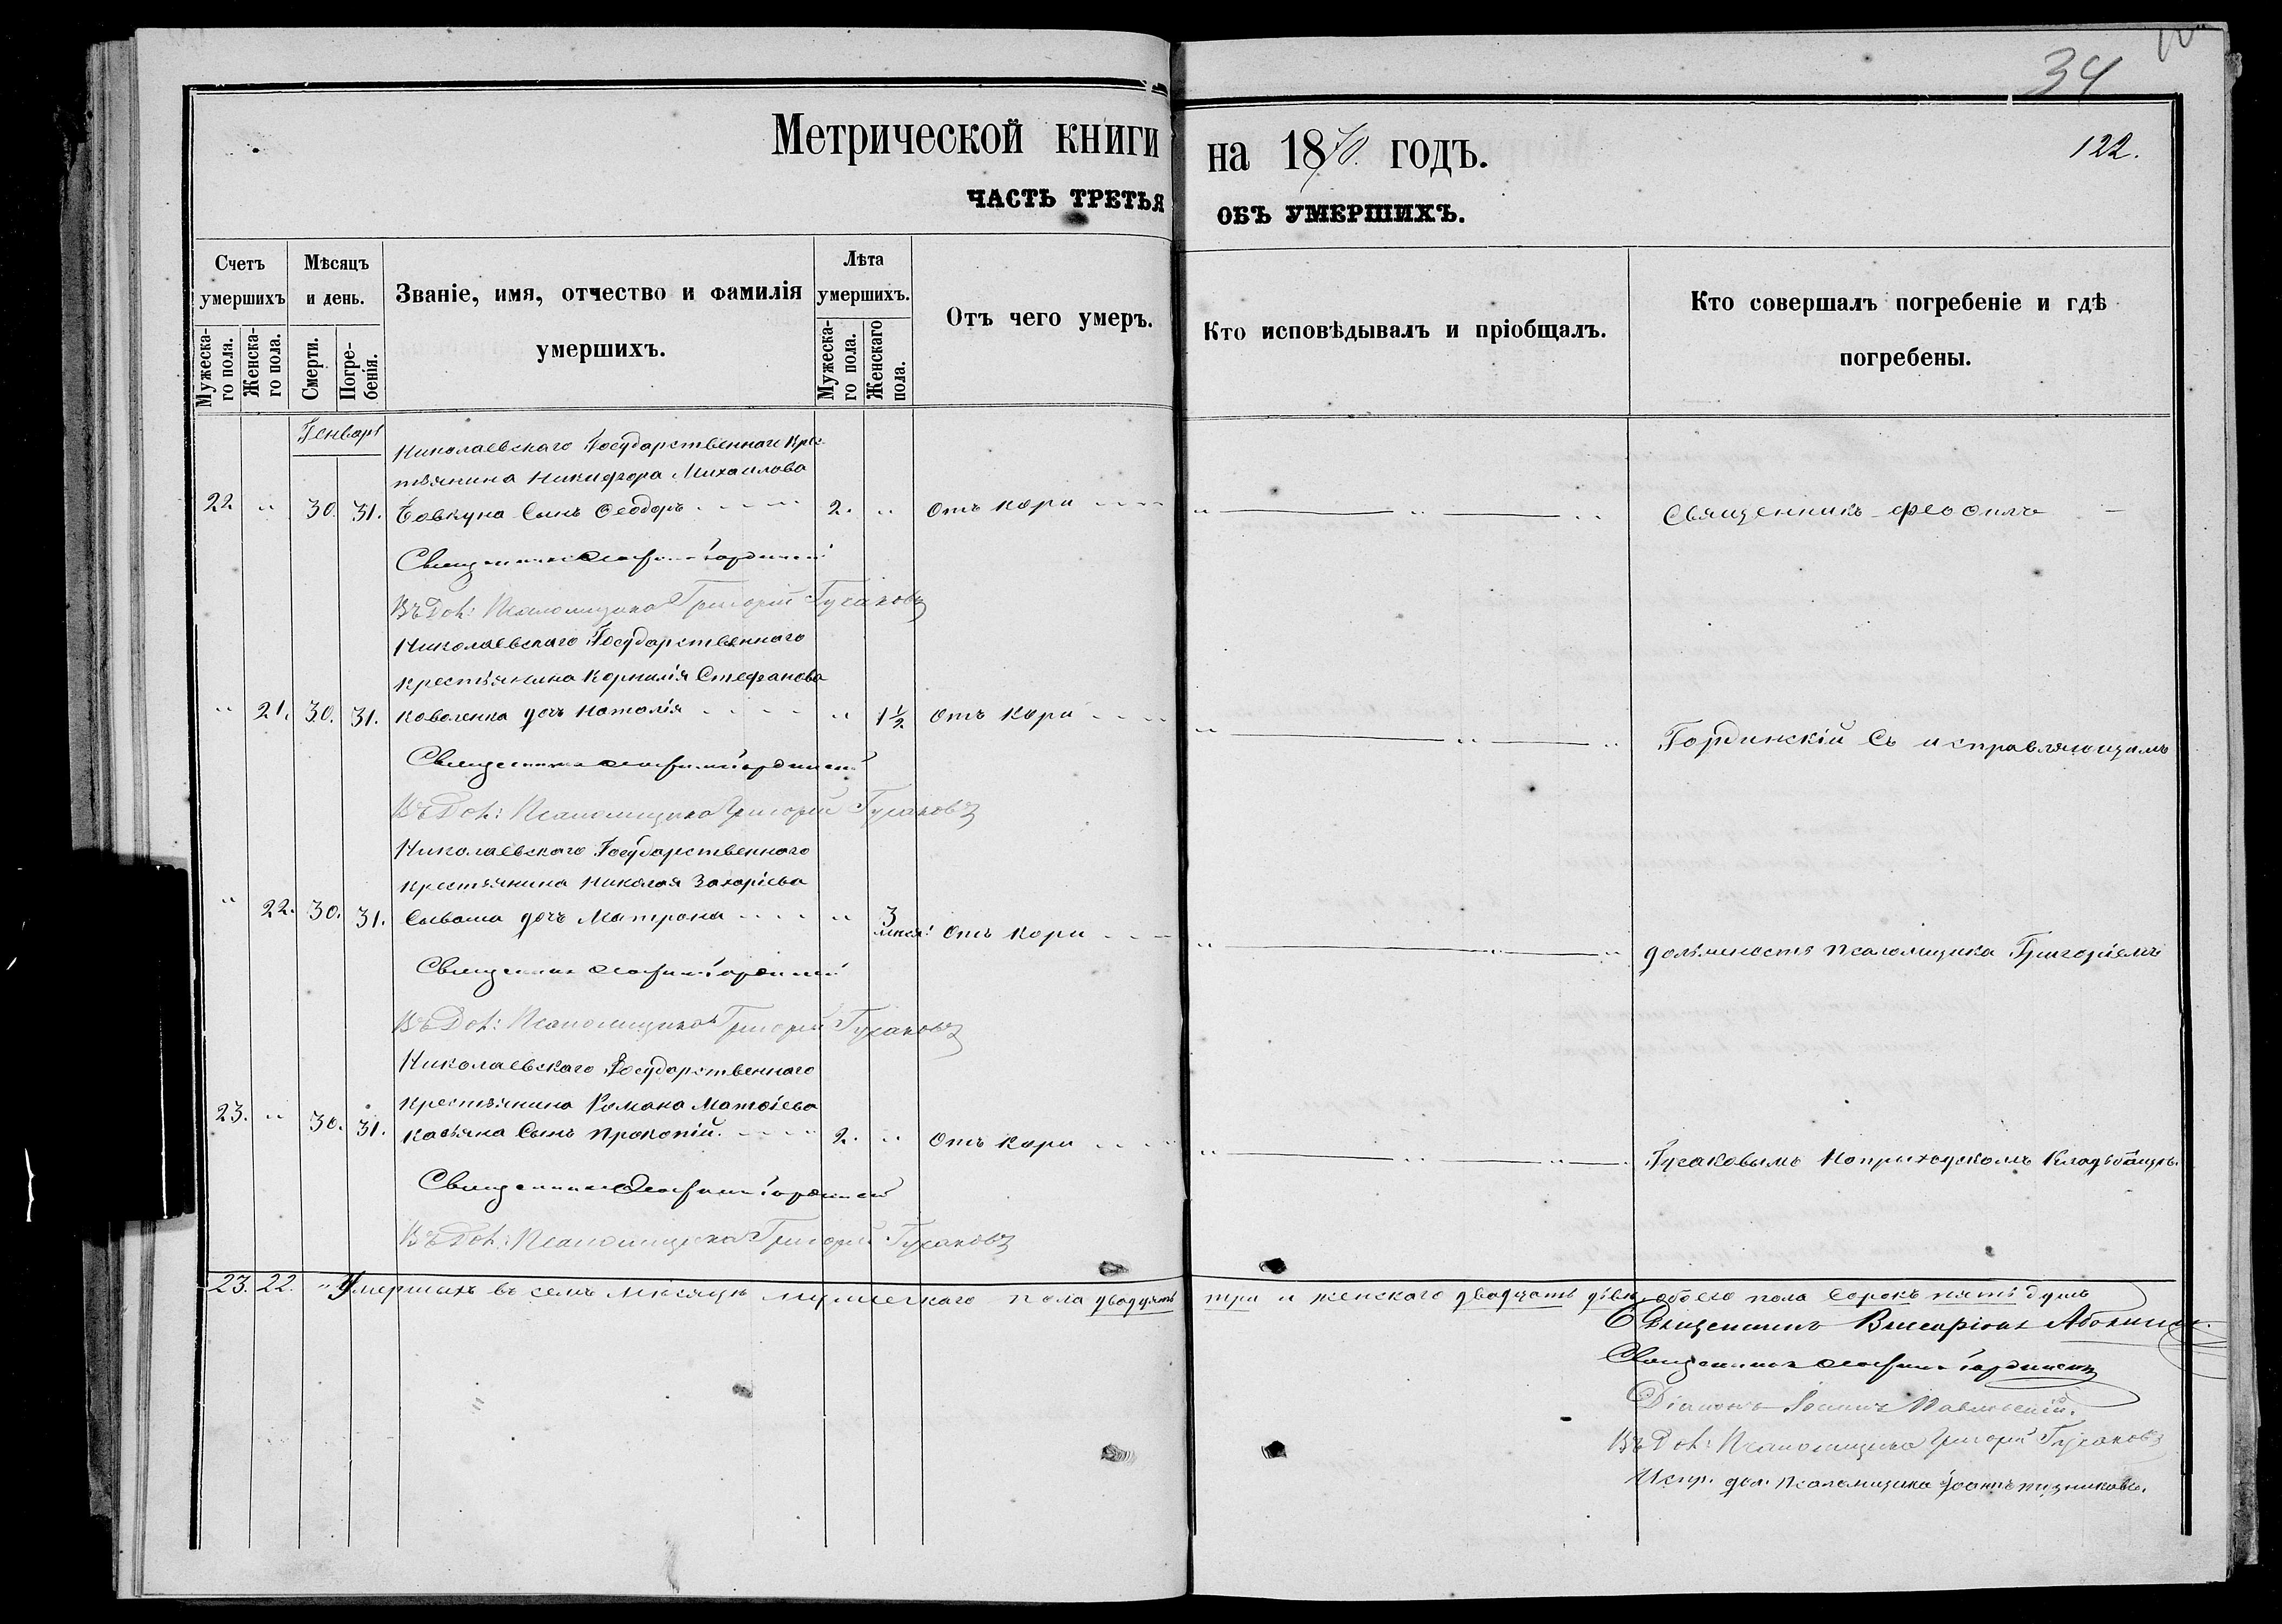 34
122.
Метрической книги на 1870. годъ.
часть третья объ умершихъ.
Счетъ умершихъ
Мужеска-го пола.
Женска-го пола.
Мѣсяцъ и день.
Смерти.
Погре-бенія.
Званіе, имя, отчество и фамилія
умершихъ.
Лѣта умершихъ.
Мужеска-го пола.
Женскаго пола.
Отъ чего умеръ.
Кто исповѣдывалъ и пріобщалъ.
Кто совершалъ погребеніе и гдѣ
погребены.
Генварь
Николаевскаго Государственнаго Крес
тьянина Никифора Михаилова
22 " 30. 31. Бовкуна Сынъ Ѳеодоръ 2. " Отъ Кори Священникъ Ѳеофилъ
Священникъ Ѳеофилъ Гординскій
Въ Дол: Псаломщика Григорій Гусаковъ
Николаевскаго Государственнаго
крестьянина Корнилія Стефанова
" 21. 30. 31. Коваленка дочь Наталія " 1½ Отъ Кори Гординскій Съ исправляющимъ
Священникъ Ѳеофилъ Гординскій
Въ Дол: Псаломщика Григорій Гусаковъ
Николаевскаго Государственнаго
крестьянина Николая Захаріева
" 22. 30. 31. Сиваша дочь Матрона " 3 мѣся: Отъ Кори должность псаломщика Григоріемъ
Священникъ Ѳеофилъ Гординскій
Въ Дол: Псаломщика Григорій Гусаковъ
Николаевскаго Государственнаго
крестьянина Романа Матѳіева
23. " 30. 31. Касьяна Сынъ Прокопій. 2. " Отъ Кори Гусаковымъ На приходскомъ Кладбищѣ.
Священникъ Ѳеофилъ Гординскій
Въ Дол: Псаломщика Григорій Гусаковъ
23. 22. " Умершихъ въ семъ мѣсяцѣ мужескаго пола двадцать три и женскаго двадцать двѣ, обоего пола Сорокъ пять душъ
Священникъ Виссаріонъ
Священникъ Ѳеофилъ Гординскій
Діаконъ Іоаннъ
Въ Дол: Псаломщика Григорій Гусаковъ
Испр. дол. псаломщика